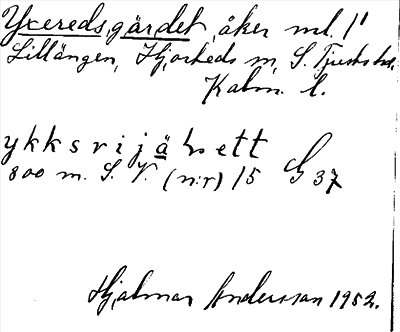 Yxeredsgärdet, åker ml. 1'
Lillängen, Hjorteds sn, S. Tjusts hd.
Kalm. l.
ykksrijä
800 m. S. V. (n:r) 15 G 37
Hjalmar Andersson 1952.